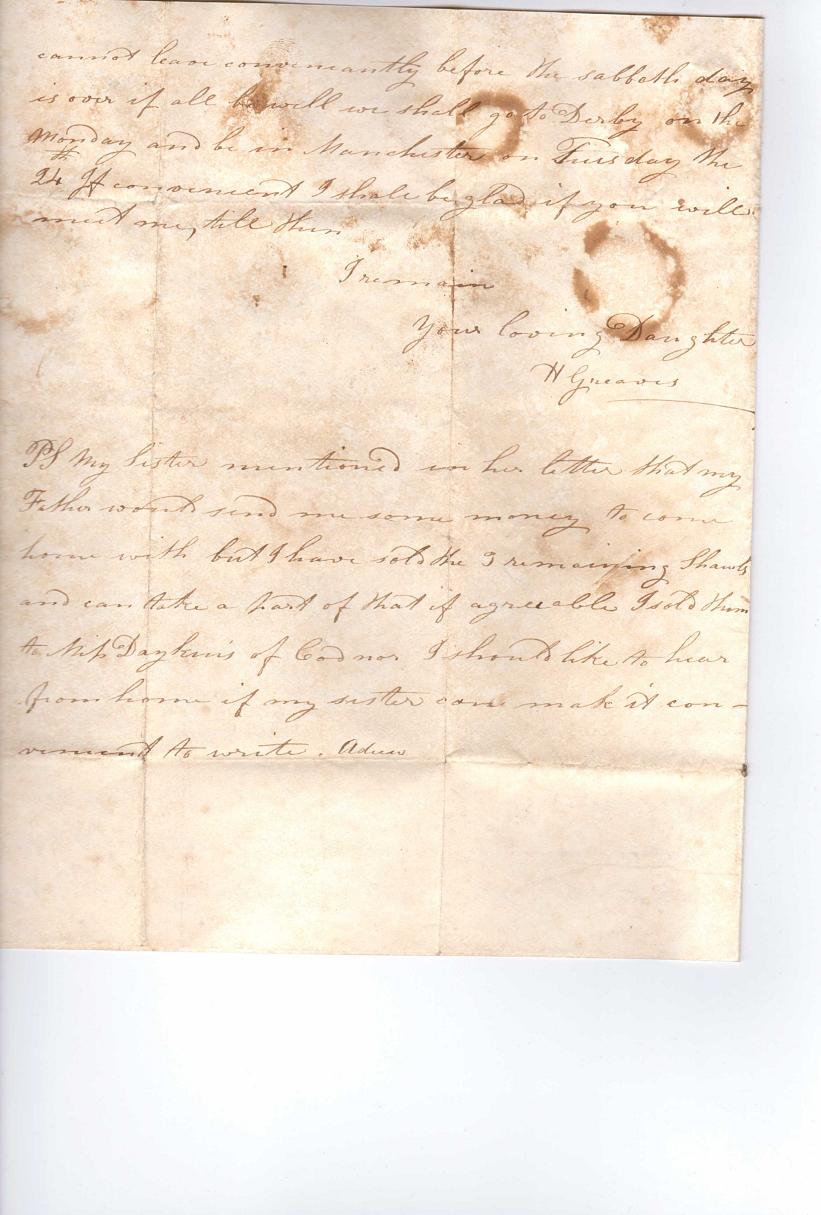 cannot leave conveneantly before the sabbath day
is over if all be well we shall go to Derby on the
Monday and be in Manchester on Tuesday the
24th If convenient I shall be glad if you will
meet me, till then
I remain
Your loving Daughter
H Greaves
PS My Sister mentioned in her letter that my
Father would send me some money to come
home with but I have sold the 3 remaining Shawls
and can take a part of that if agreeable I sold them
to Miss Daykins of Codnor I should like to hear
from home if my sister can make it con-
venient to write. Adieu